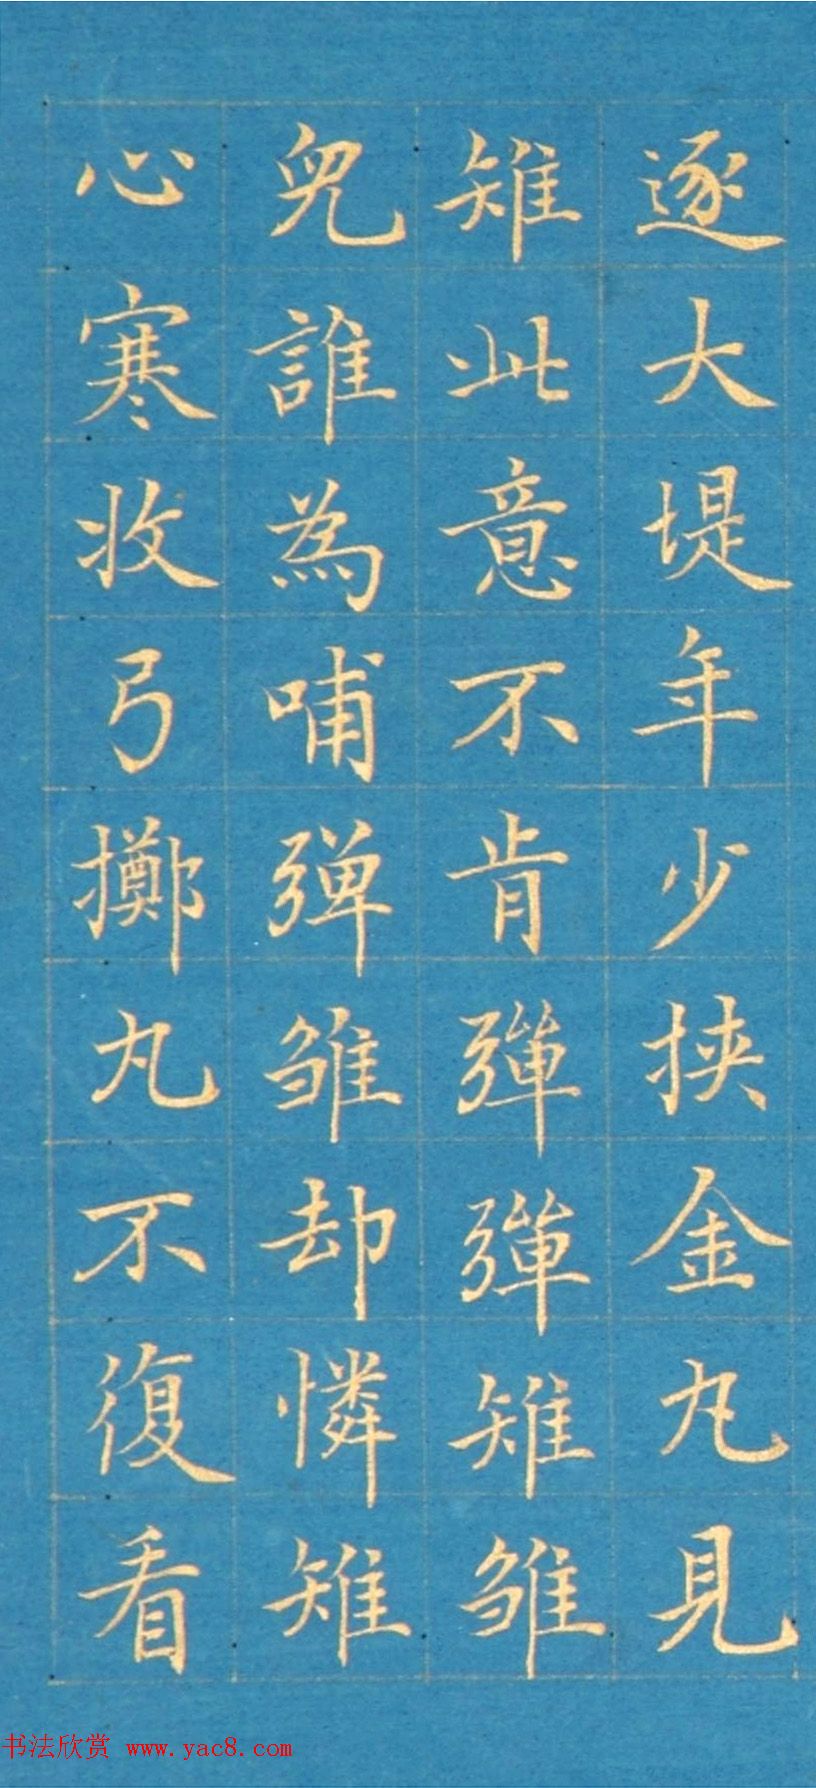 逐大堤年少挾金丸見
雉此意不肯彈彈雉雛
兒誰為哺弹雛却憐雉
心寒收弓擲丸不復看
书法欣赏 www.yac8.com